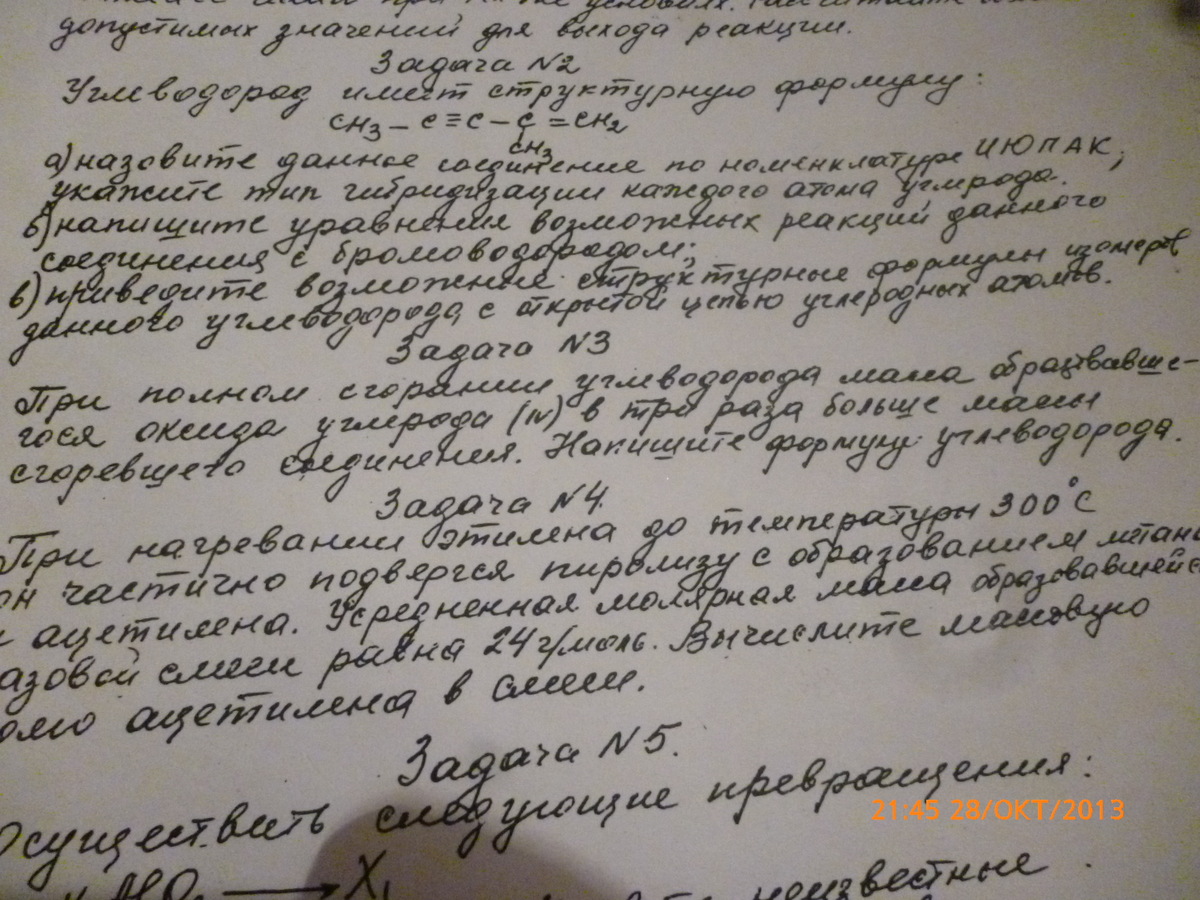 условиях.
допустимых значений для выхода реакции.
Задача №2
Углеводород имеет структурную формулу:
CH₃ – C ≡ C – C = CH₂
CH₃
а) назовите данное соединение по номенклатуре ИЮПАК;
укажите тип гибридизации каждого атома углерода.
б) напишите уравнения возможных реакций данного
соединения с бромоводородом;
в) приведите возможные структурные формулы изомеров
данного углеводорода с открытой цепью углеродных атомов.
Задача №3
При полном сгорании углеводорода масса образовавше-
гося оксида углерода (IV) в три раза больше массы
сгоревшего соединения. Напишите формулу углеводорода.
Задача №4.
При нагревании этилена до температуры 300°C
он частично подвергся пиролизу с образованием метана
и ацетилена. Усредненная молярная масса образовавшейся
азовой смеси равна 24 г/моль. Вычислите массовую
олю ацетилена в смеси.
Задача №5.
Осуществить следующие превращения:
21:45 28/ОКТ/2013
→ X₁
неизвестные